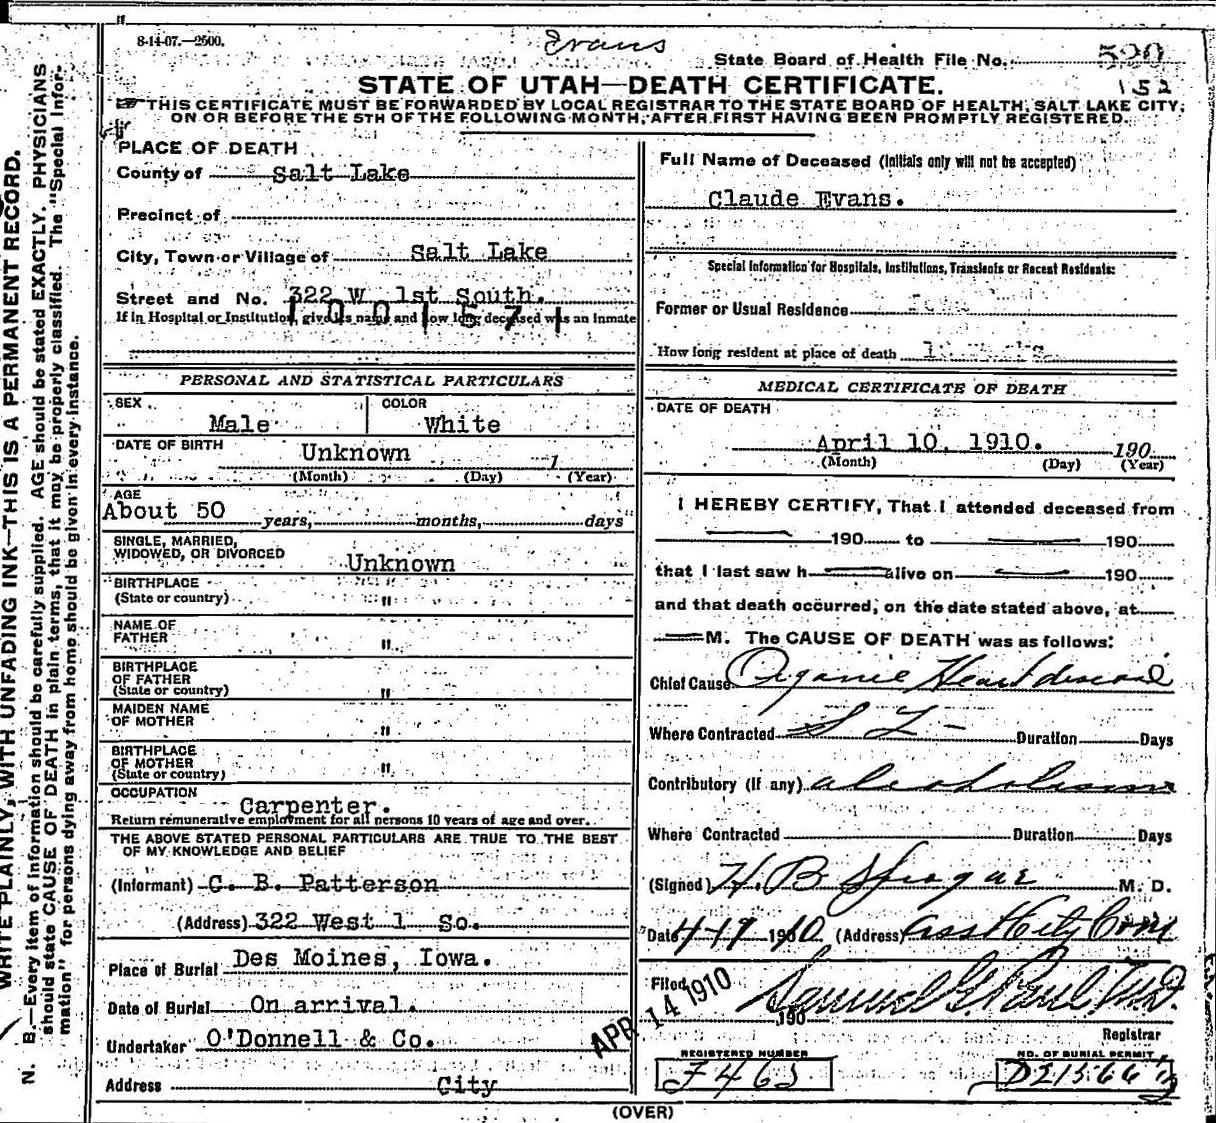 8-14-07.—2500.
Evans
State Board of Health File No. 520
152
STATE OF UTAH—DEATH CERTIFICATE.
THIS CERTIFICATE MUST BE FORWARDED BY LOCAL REGISTRAR TO THE STATE BOARD OF HEALTH, SALT LAKE CITY,
ON OR BEFORE THE 5TH OF THE FOLLOWING MONTH, AFTER FIRST HAVING BEEN PROMPTLY REGISTERED.
WRITE PLAINLY, WITH UNFADING INK—THIS IS A PERMANENT RECORD.
N. B.—Every item of information should be carefully supplied. AGE should be stated EXACTLY. PHYSICIANS
should state CAUSE OF DEATH in plain terms, that it may be properly classified. The "Special Infor-
mation" for persons dying away from home should be given in every instance.
PLACE OF DEATH
County of Salt Lake
Precinct of
City, Town or Village of Salt Lake
Street and No. 322 W 1st South.
If in Hospital or Institution, give its name and how long deceased was an inmate
1001571
PERSONAL AND STATISTICAL PARTICULARS
SEX
Male
COLOR
White
DATE OF BIRTH
Unknown 1
(Month) (Day) (Year)
AGE
About 50 years, months, days
SINGLE, MARRIED,
WIDOWED, OR DIVORCED Unknown
BIRTHPLACE
(State or country) "
NAME OF
FATHER "
BIRTHPLACE
OF FATHER
(State or country) "
MAIDEN NAME
OF MOTHER "
BIRTHPLACE
OF MOTHER
(State or country) "
OCCUPATION
Carpenter.
Return remunerative employment for all persons 10 years of age and over.
THE ABOVE STATED PERSONAL PARTICULARS ARE TRUE TO THE BEST
OF MY KNOWLEDGE AND BELIEF
(Informant) C. B. Patterson
(Address) 322 West 1 So.
Place of Burial Des Moines, Iowa.
Date of Burial On arrival.
Undertaker O'Donnell & Co.
Address City
Full Name of Deceased (Initials only will not be accepted)
Claude Evans.
Special Information for Hospitals, Institutions, Transients or Recent Residents:
Former or Usual Residence
How long resident at place of death
MEDICAL CERTIFICATE OF DEATH
DATE OF DEATH
April 10, 1910. 190
(Month) (Day) (Year)
I HEREBY CERTIFY, That I attended deceased from
190 to 190
that I last saw h alive on 190
and that death occurred, on the date stated above, at
M. The CAUSE OF DEATH was as follows:
Chief Cause Organic Heart disease
Where Contracted S L - Duration Days
Contributory (If any) alcoholism
Where Contracted Duration Days
(Signed) H. B Sprague M. D.
Date 4-19 1910 (Address) Asst City Com
Filed APR 14 1910 190
Samuel G. Paul, M.D.
Registrar
REGISTERED NUMBER
F 463
NO. OF BURIAL PERMIT
D21566
(OVER)